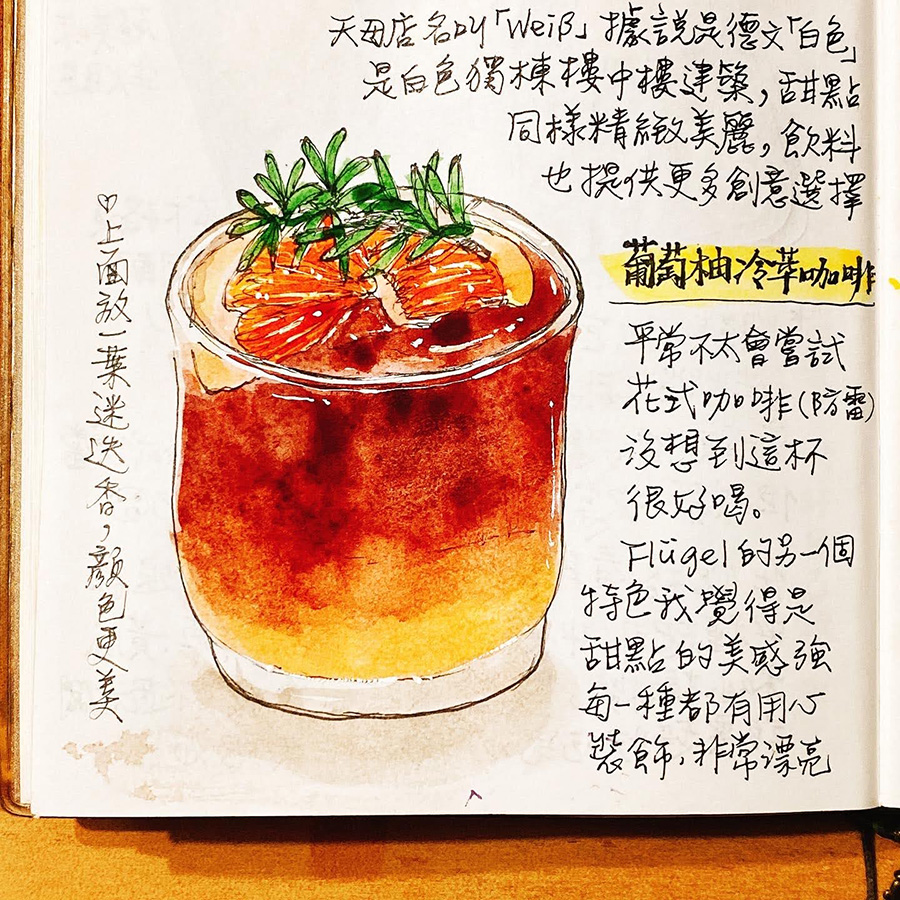 天母店名叫「Weiß」據說是德文「白色」
是白色獨棟樓中樓建築，甜點
同樣精緻美麗，飲料
也提供更多創意選擇
葡萄柚冷萃咖啡
平常不太會嘗試
花式咖啡(防雷)
沒想到這杯
很好喝。
Flügel的另一個
特色我覺得是
甜點的美感強
每一種都有用心
裝飾，非常漂亮
♡上面放一葉迷迭香，顏色更美